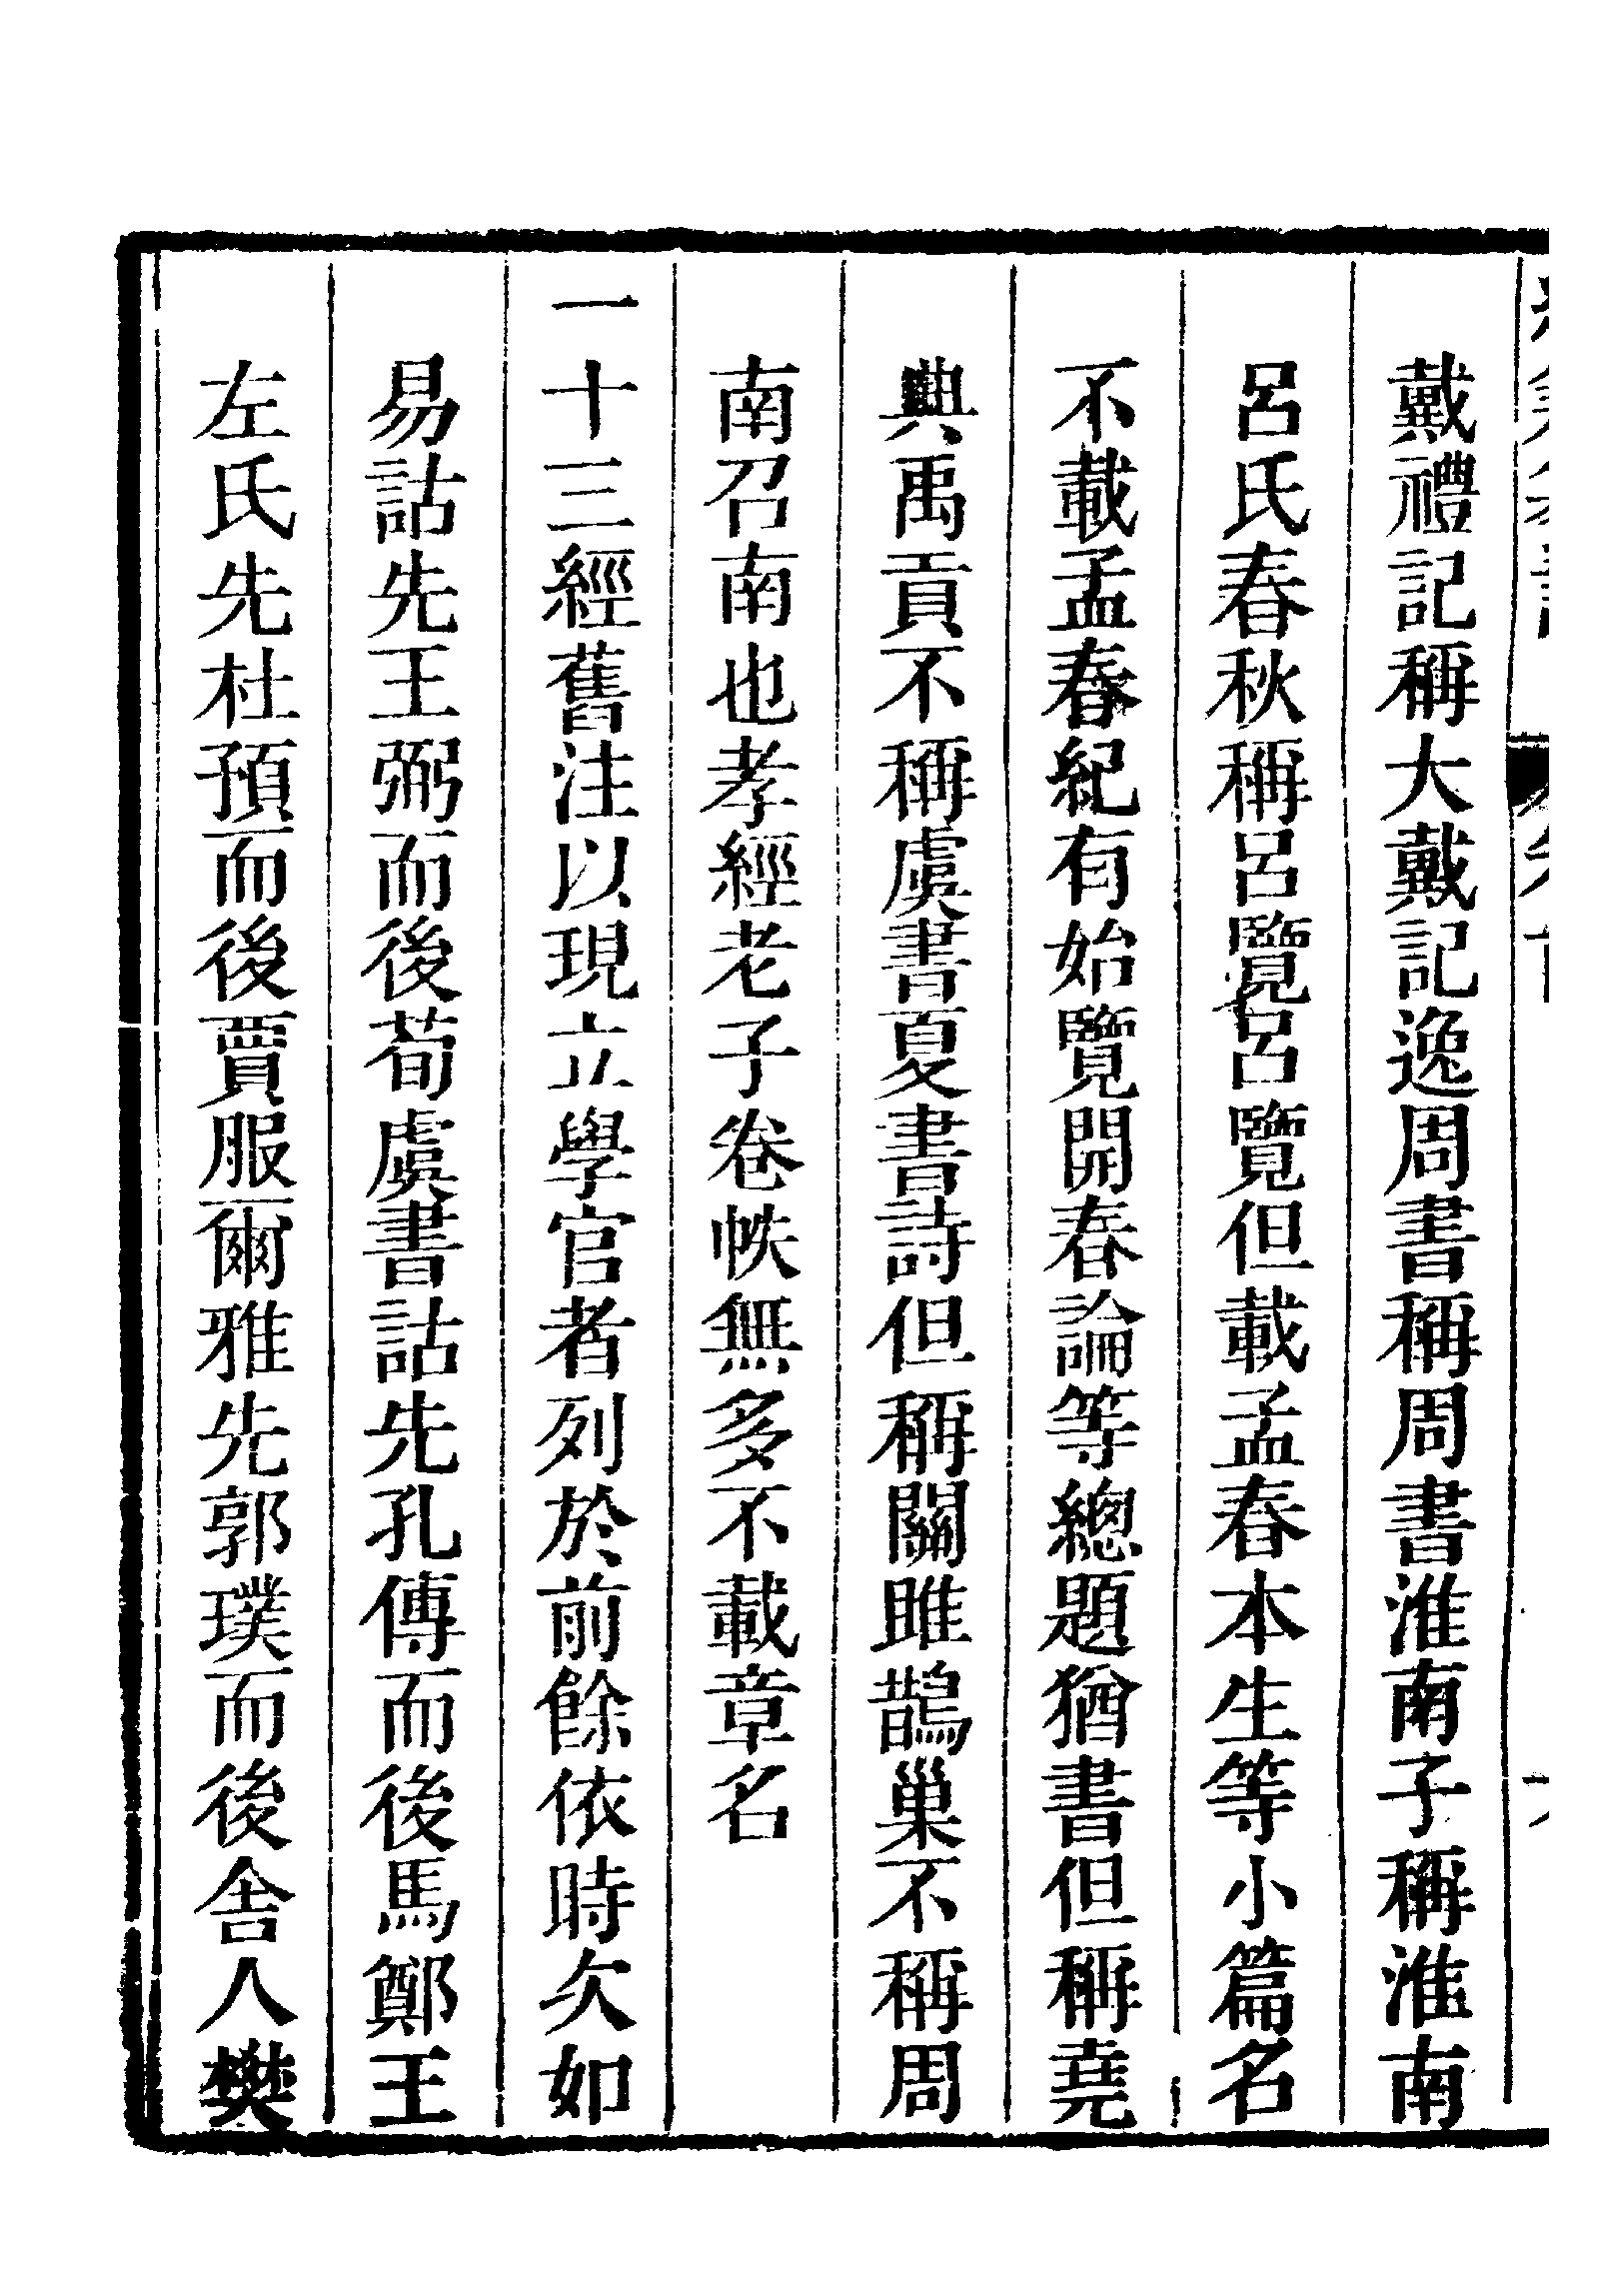 戴禮記稱大戴記逸周書稱周書淮南子稱淮南
呂氏春秋稱呂覽呂覽但載孟春本生等小篇名
不載孟春紀有始覽開春論等總題猶書但稱堯
典禹貢不稱虞書夏書詩但稱關雎鵲巢不稱周
南召南也孝經老子卷帙無多不載章名
一十三經舊注以現立學官者列於前餘依時次如
易詁先王弼而後荀虞書詁先孔傳而後馬鄭王
左氏先杜預而後賈服爾雅先郭璞而後舍人樊